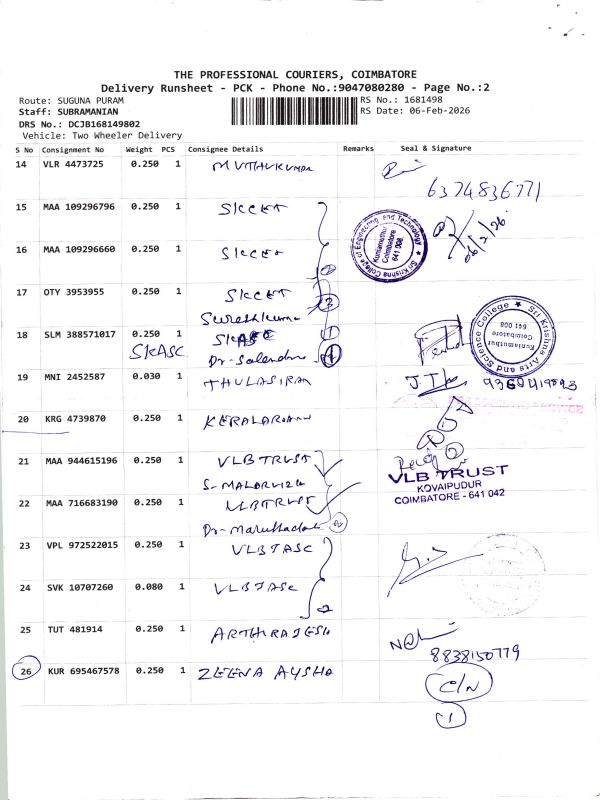 THE PROFESSIONAL COURIERS, COIMBATORE
Delivery Runsheet - PCK - Phone No.:9047080280 - Page No.:2
Route: SUGUNA PURAM
RS No.: 1681498
Staff: SUBRAMANIAN
RS Date: 06-Feb-2026
DRS No.: DCJB168149802
Vehicle: Two Wheeler Delivery
S No Consignment No Weight PCS Consignee Details Remarks Seal & Signature
14 VLR 4473725 0.250 1 MUTHUKUMAR
6374836771
15 MAA 109296796 0.250 1 SKCET
06/2/26
Sri Krishna College of Engineering and Technology
Kuniamuthur
Coimbatore
641 008
16 MAA 109296660 0.250 1 SKCET
17 OTY 3953955 0.250 1 SKCET
Sureshkumar
18 SLM 388571017 0.250 1 SKASC
SKASC
Sri Krishna Arts and Science College
Kuniamuthur
Coimbatore
641 008
19 MNI 2452587 0.030 1 THULASIRAM
20 KRG 4739870 0.250 1
21 MAA 944615196 0.250 1 VLB TRUST
VLB TRUST
KOVAIPUDUR
COIMBATORE - 641 042
22 MAA 716683190 0.250 1 VLBTRUST
23 VPL 972522015 0.250 1 VLBJASC
24 SVK 10707260 0.080 1 VLBJASC
25 TUT 481914 0.250 1 ARTHIRAJESH
8838150779
26 KUR 695467578 0.250 1 ZEENA AYSHA
C/N
1